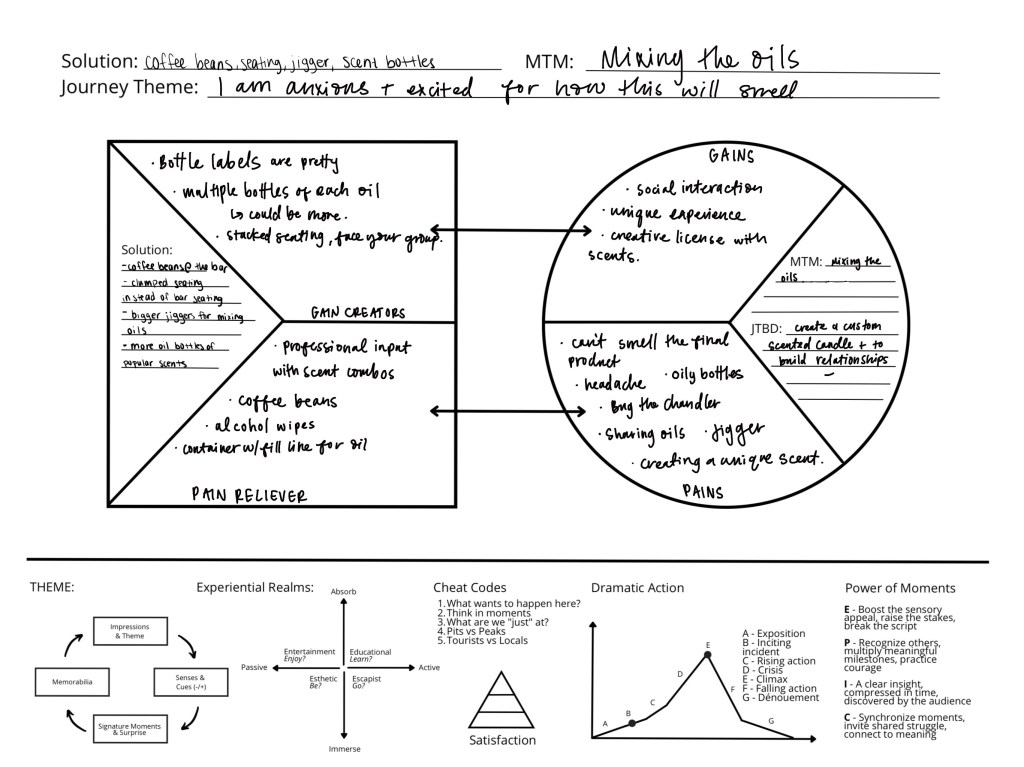 Solution: coffee beans, seating, jigger, scent bottles
MTM: Mixing the oils
Journey Theme: I am anxious + excited for how this will smell
· Bottle labels are pretty
· multiple bottles of each oil
↳ could be more.
· stacked seating, face your group.
Solution:
- coffee beans @ the bar
- clumped seating
instead of bar seating
- bigger jiggers for mixing
oils
- more oil bottles of
popular scents
GAIN CREATORS
· Professional input
with scent combos
· coffee beans
· alcohol wipes
· container w/ fill line for oil
PAIN RELIEVER
GAINS
· social interaction
· unique experience
· creative license with
scents.
MTM: Mixing the
oils
JTBD: create a custom
scented candle + to
build relationships
· can't smell the final
product
· headache · oily bottles
· Bug the chandler
· Sharing oils · Jigger
· creating a unique scent.
PAINS
THEME:
Impressions
& Theme
Memorabilia
Senses &
Cues (-/+)
Signature Moments
& Surprise
Experiential Realms:
Absorb
Entertainment
Enjoy?
Educational
Learn?
Passive
Active
Esthetic
Be?
Escapist
Go?
Immerse
Cheat Codes
1. What wants to happen here?
2. Think in moments
3. What are we "just" at?
4. Pits vs Peaks
5. Tourists vs Locals
Satisfaction
Dramatic Action
A
B
C
D
E
F
G
A - Exposition
B - Inciting
incident
C - Rising action
D - Crisis
E - Climax
F - Falling action
G - Dénouement
Power of Moments
E - Boost the sensory
appeal, raise the stakes,
break the script
P - Recognize others,
multiply meaningful
milestones, practice
courage
I - A clear insight,
compressed in time,
discovered by the audience
C - Synchronize moments,
invite shared struggle,
connect to meaning